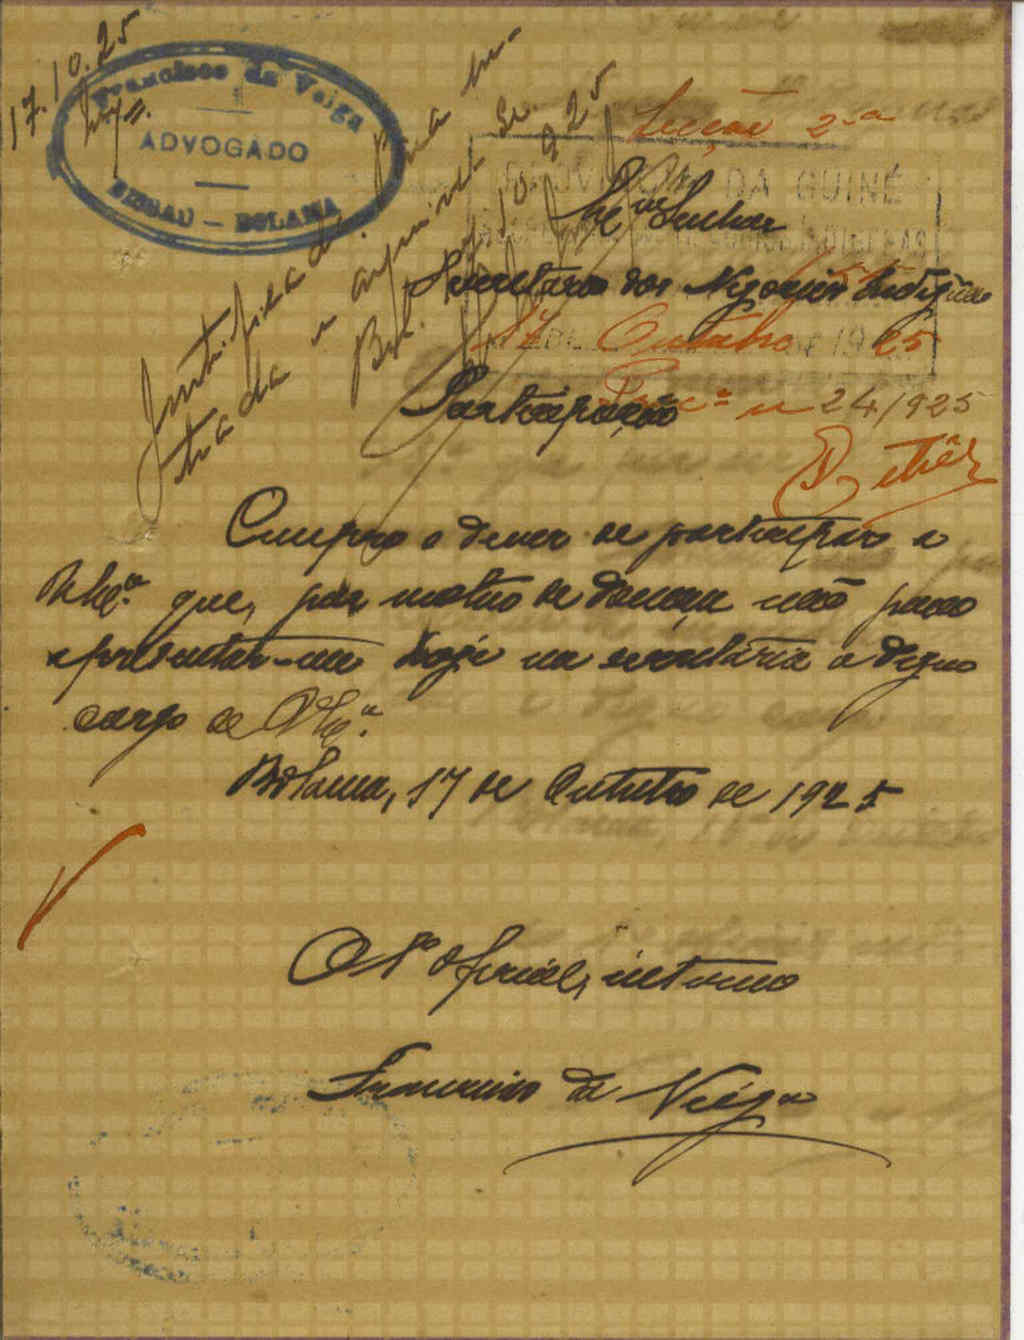 17.10.25
Francisco da Veiga
ADVOGADO
BISSAU — BOLAMA
Secção 2.ª
PROVINCIA DA GUINÉ
Senhor
Secretario dos Negocios Indigenas
17 Outubro 1925
Participação
Proc.º n 24/925
Justificada.
trada e arquive-se.
Bol. 17.10.925
Cumpro o dever de participar a
V. Ex.ª que, por motivo de doença não posso
apresentar-me hoje na secretaria a digno
cargo de V. Ex.ª
Bolama, 17 de Outubro de 1925
O 1º oficial, interino
Francisco da Veiga